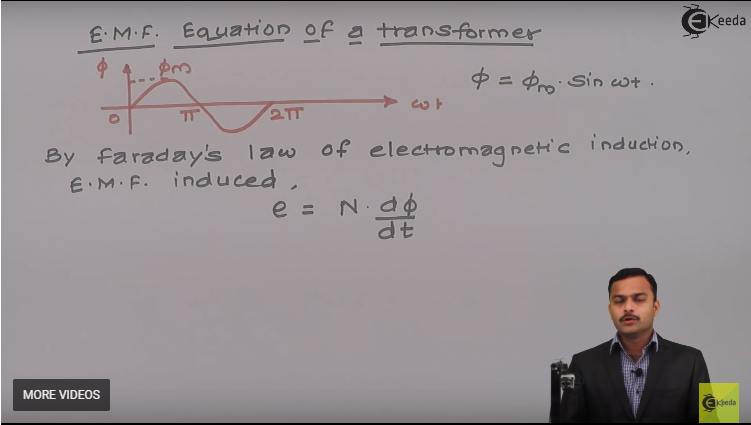 E.M.F. Equation of a transformer
EKeeda
ϕ
ϕm
ϕ = ϕm . sin ωt .
0
π
2π
ωt
By faraday's law of electromagnetic induction,
E.M.F. induced,
e = N . dϕ
dt
MORE VIDEOS
EKeeda